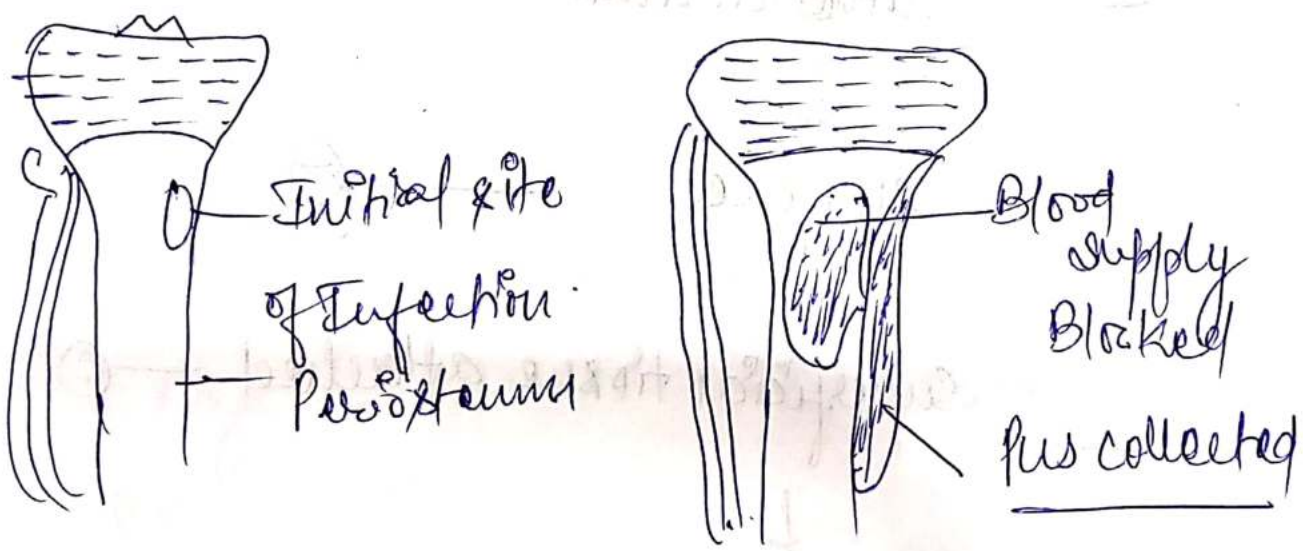 Initial site
of Infection.
Periosteum
Blood
supply
Blocked
Pus collected